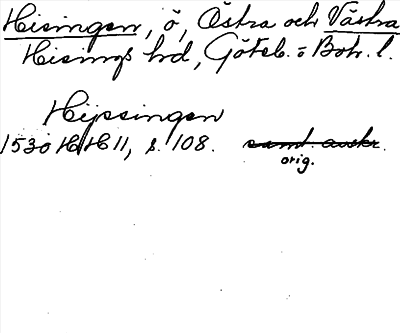 Hisingen, ö, Östra och Västra
Hisings hd, Göteb. o Boh. l.
Hijssingen
1530 HH 11, s. 108. samt. avskr.
orig.